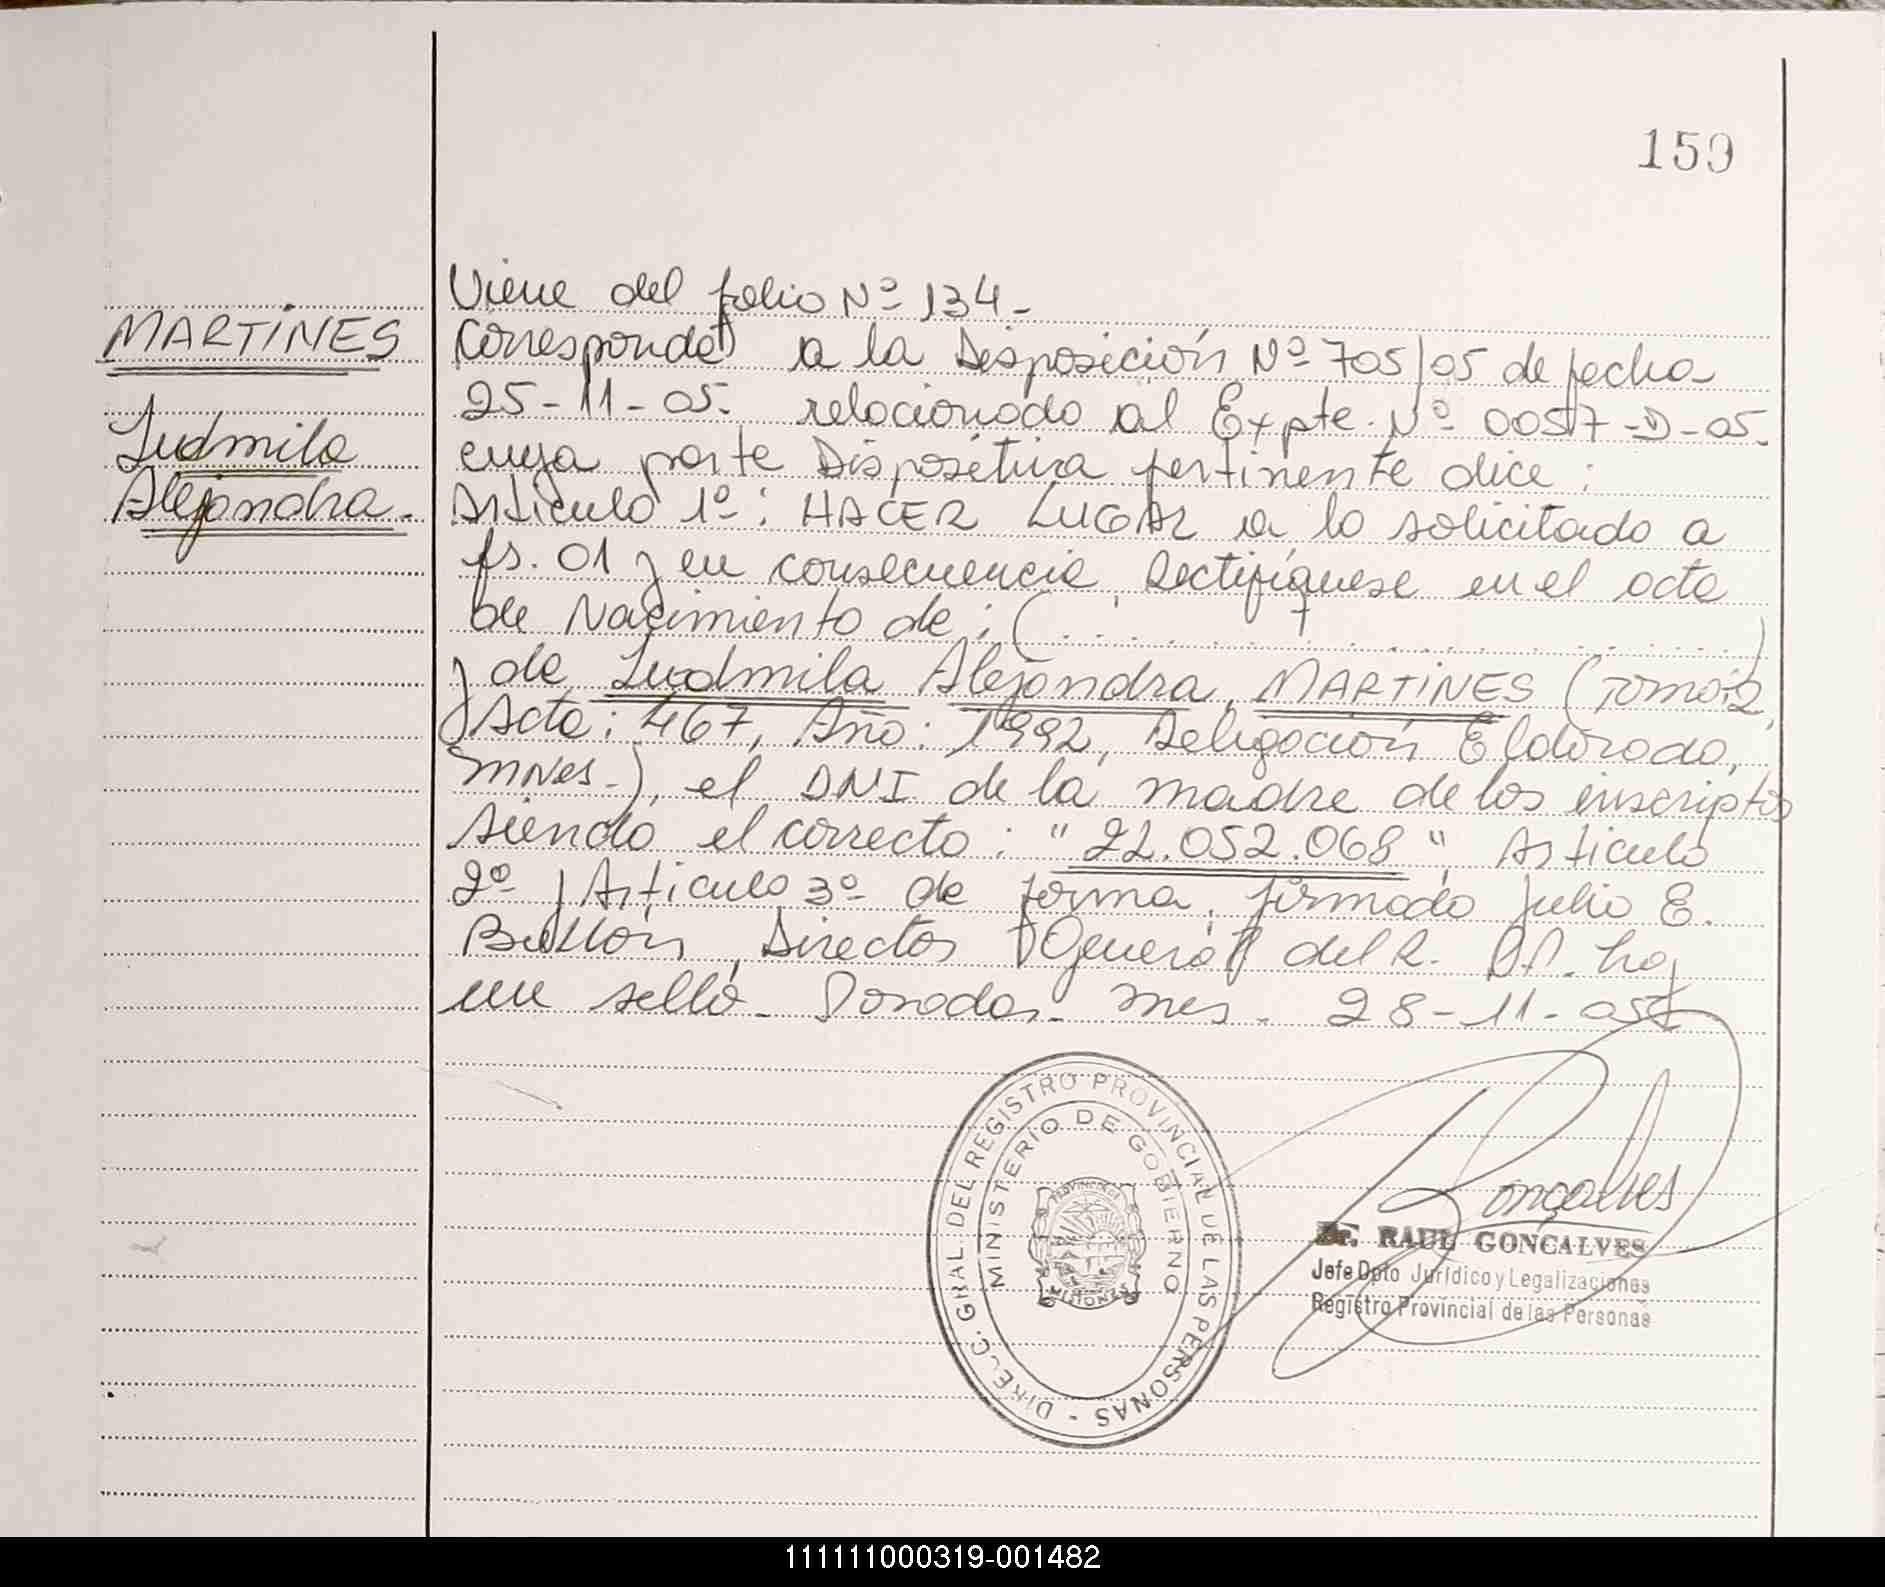 159
MARTINES
Ludmila
Alejandra.
Viene del folio Nº 134-
Corresponde a la Disposición Nº 705/05 de fecha
25-11-05. relacionado al Expte. Nº 0057-D-05.
cuya parte Dispositiva pertinente dice:
Artículo 1º: HACER LUGAR a lo solicitado a
fs. 01 y en consecuencia, Rectifíquese en el acta
de Nacimiento de: (..............................)
y de Ludmila Alejandra MARTINES (Tomo: 2,
Acta: 467, Año: 1992, Delegación Eldorado,
Mnes.), el DNI de la madre de los inscriptos
siendo el correcto: "22.052.068" Artículo
2º y Artículo 3º de forma, firmado Julio E.
Director General del R. P.P. hay
un sello. Posadas. Mnes. 28-11-05
DIREC. GRAL. DEL REGISTRO PROVINCIAL DE LAS PERSONAS -
MINISTERIO DE GOBIERNO
PROVINCIA DE
MISIONES
R Gonçalves
Dr. RAUL GONÇALVES
Jefe Dpto Jurídico y Legalizaciones
Registro Provincial de las Personas
111111000319-001482